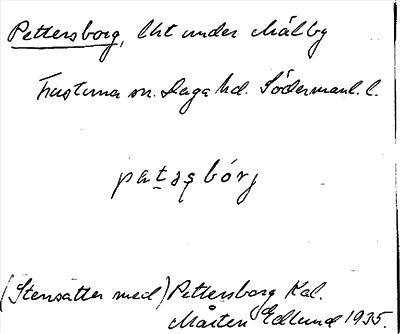 Pettersborg, lht under Målby
Frustuna sn. Daga hd. Södermanl. l.
pa
(Stensätter med) Pettersborg Kal.
Mårten Edlund 1935.